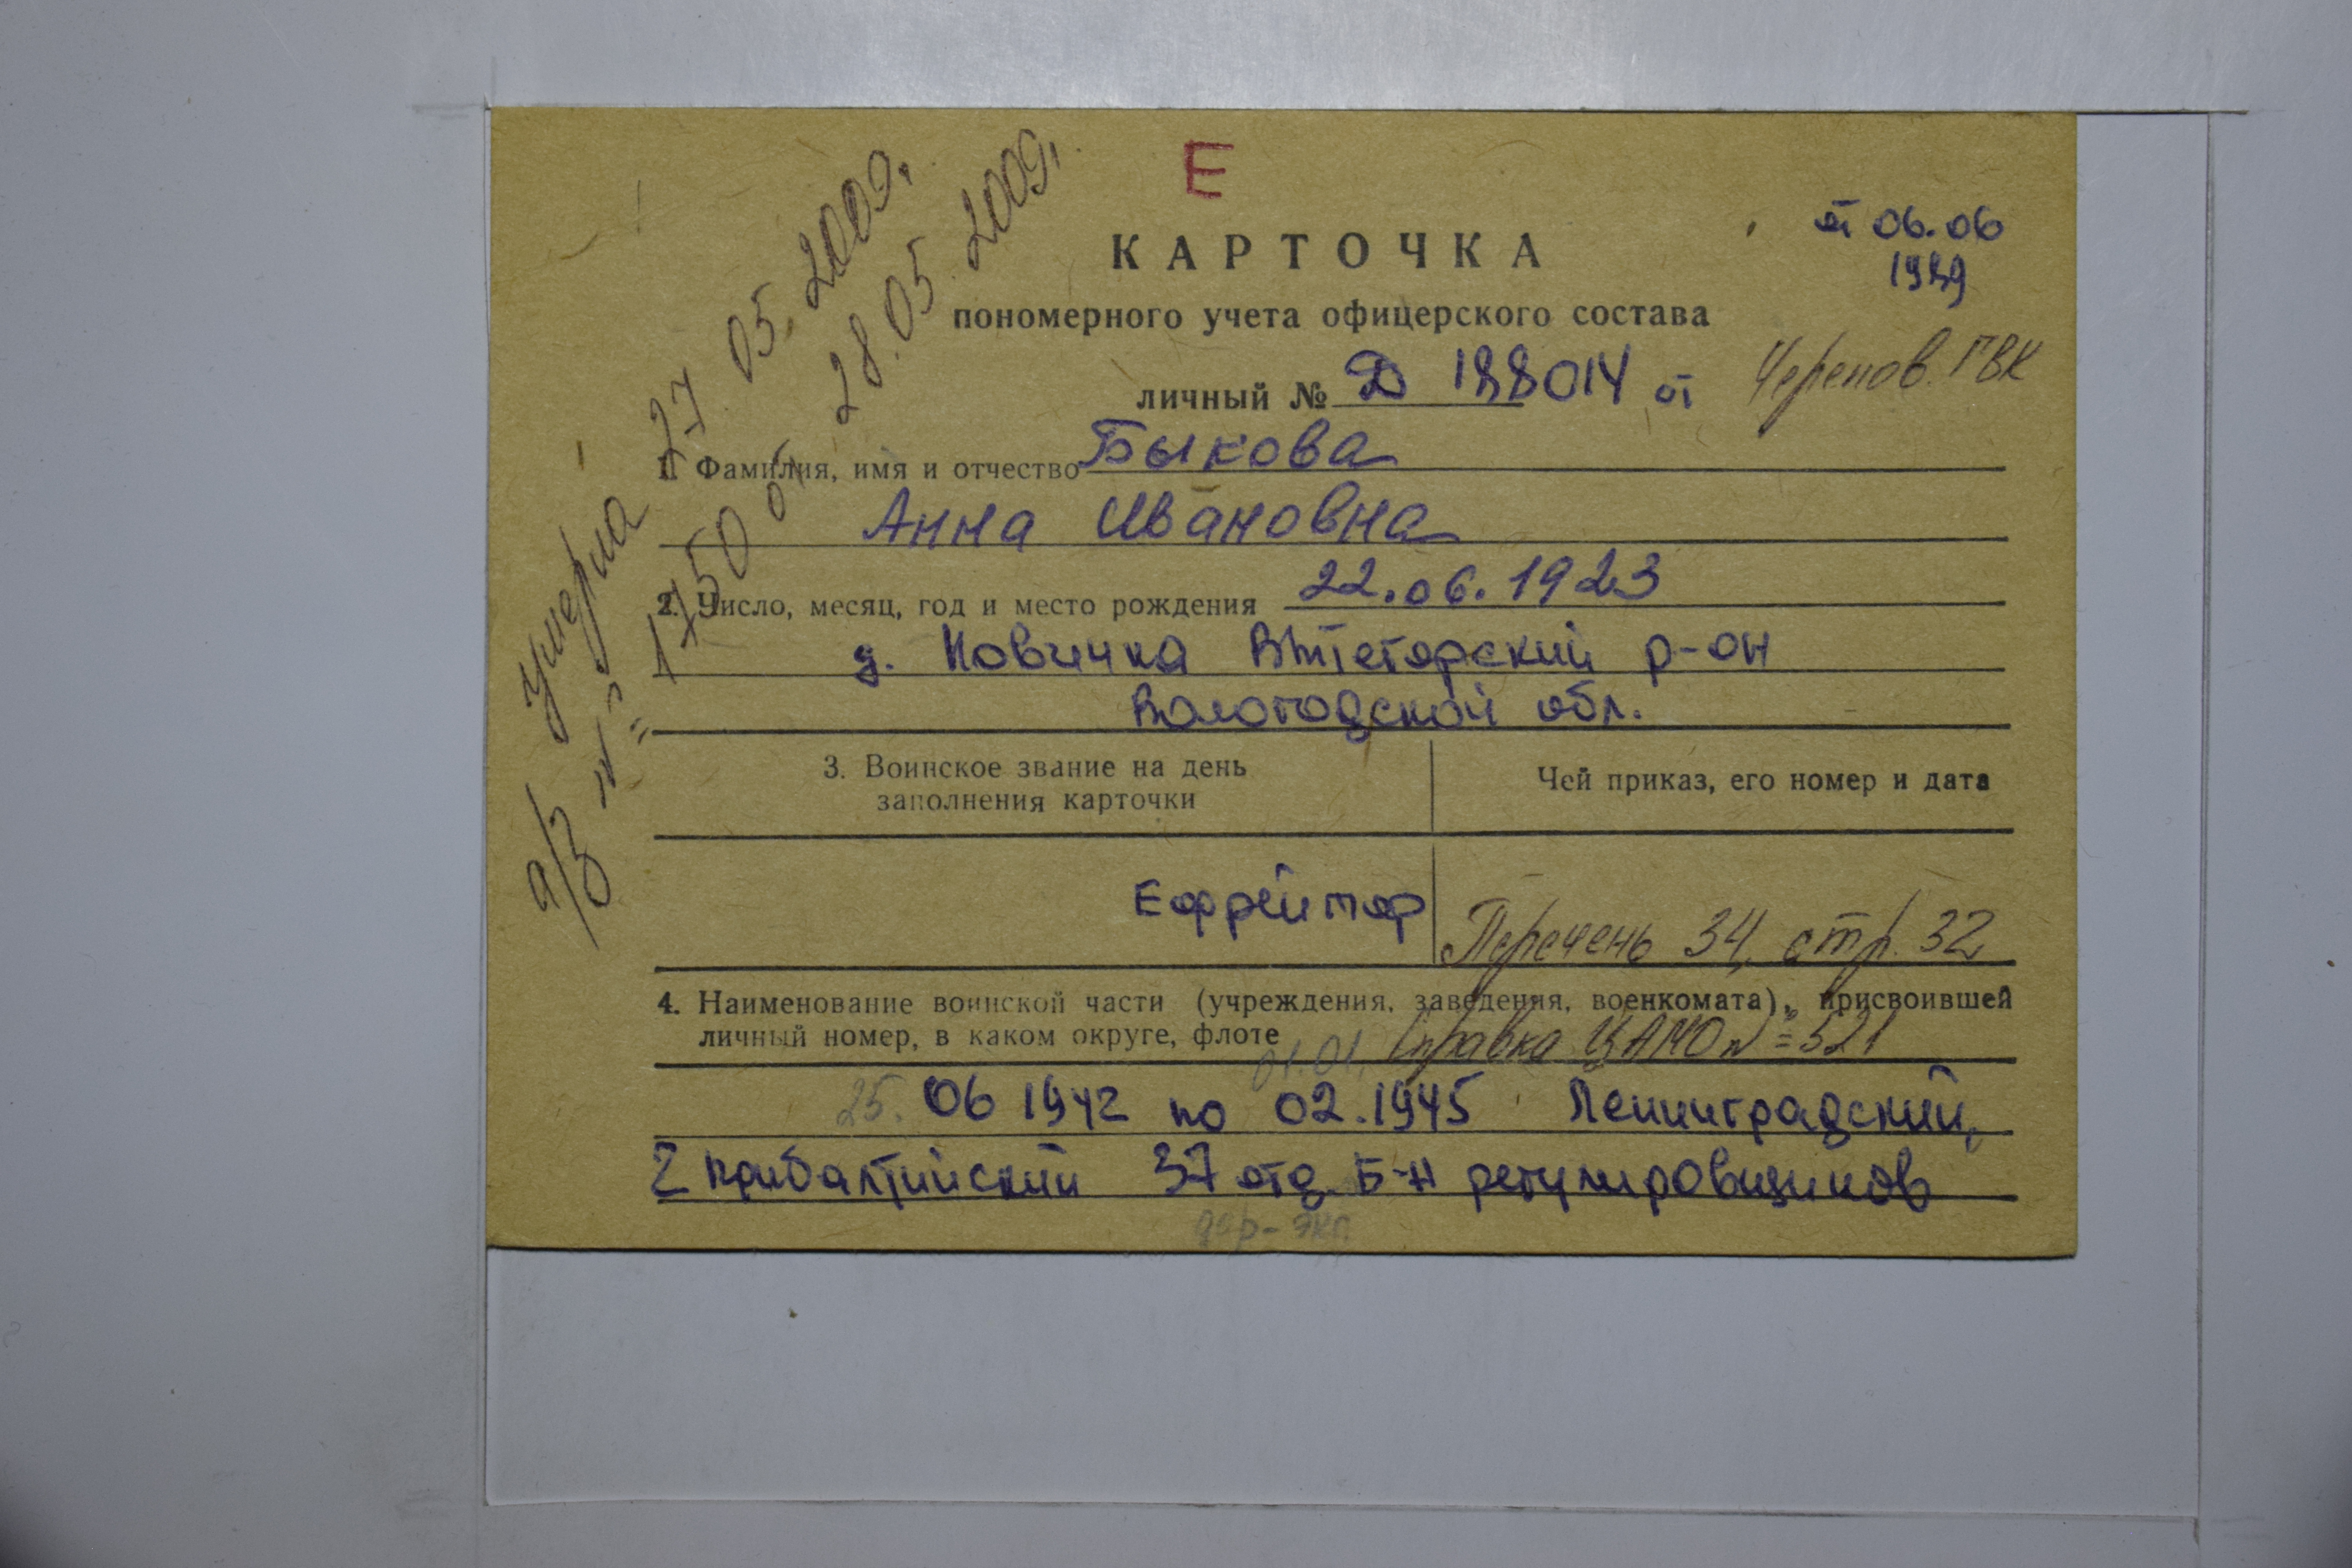 Е
КАРТОЧКА
от 06.06
пономерного учета офицерского состава
личный № Д 188014 от
Черепов. ГВК
1. Фамилия, имя и отчество Быкова
Анна Ивановна
2. Число, месяц, год и место рождения 22.06.1923
д. Новинка Вытегорский р-он
Вологодской обл.
3. Воинское звание на день
заполнения карточки
Чей приказ, его номер и дата
Ефрейтор
Перечень 34, стр. 32
4. Наименование воинской части (учреждения, заведения, военкомата), присвоившей
личный номер, в каком округе, флоте
01.01. Справка ЦАМО № 521
25. 06 1942 по 02.1945 Ленинградский,
2 прибалтийский 37 отд. Б-н регулировщиков
дор-экс.
Умерла 27 05. 2009.
а/з № 1750 от 28.05 2009.